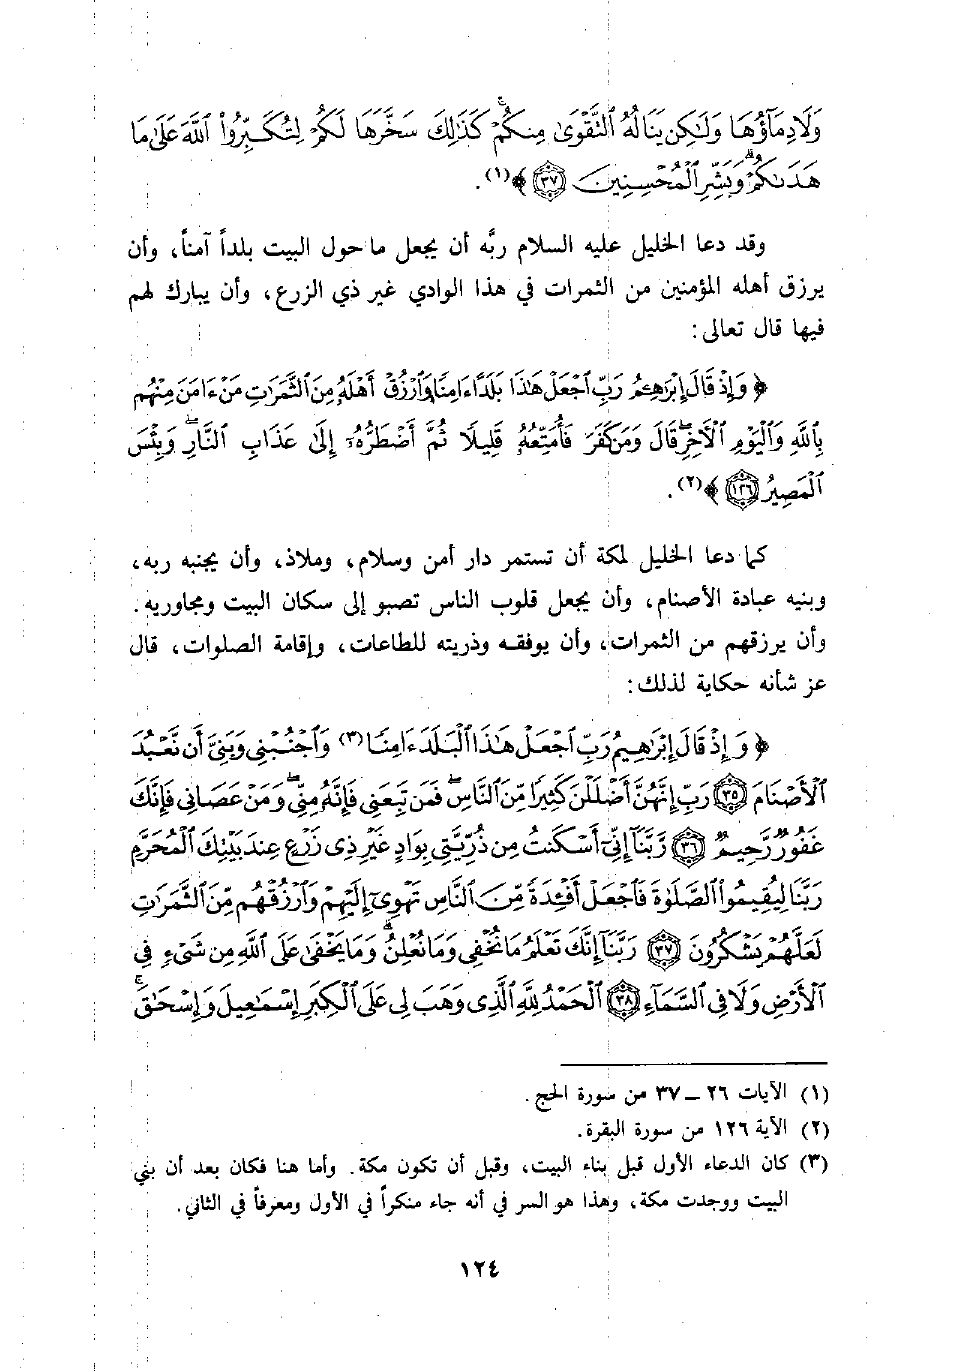 وَلَا دِمَآؤُهَا وَلَٰكِن يَنَالُهُ ٱلتَّقْوَىٰ مِنكُمْ ۚ كَذَٰلِكَ سَخَّرَهَا لَكُمْ لِتُكَبِّرُوا۟ ٱللَّهَ عَلَىٰ مَا
هَدَىٰكُمْ ۗ وَبَشِّرِ ٱلْمُحْسِنِينَ ﴿٣٧﴾ ﴾(١).
وقد دعا الخليل عليه السلام ربَّه أن يجعل ما حول البيت بلداً آمناً، وأن
يرزق أهله المؤمنين من الثمرات في هذا الوادي غير ذي الزرع، وأن يبارك لهم
فيها قال تعالى:
﴿ وَإِذْ قَالَ إِبْرَٰهِـۧمُ رَبِّ ٱجْعَلْ هَٰذَا بَلَدًا ءَامِنًا وَٱرْزُقْ أَهْلَهُۥ مِنَ ٱلثَّمَرَٰتِ مَنْ ءَامَنَ مِنْهُم
بِٱللَّهِ وَٱلْيَوْمِ ٱلْآخِرِ ۖ قَالَ وَمَن كَفَرَ فَأُمَتِّعُهُۥ قَلِيلًا ثُمَّ أَضْطَرُّهُۥٓ إِلَىٰ عَذَابِ ٱلنَّارِ ۖ وَبِئْسَ
ٱلْمَصِيرُ ﴿١٢٦﴾ ﴾(٢).
كما دعا الخليل لمكة أن تستمر دار أمن وسلام، وملاذ، وأن يجنبه ربه،
وبنيه عبادة الأصنام، وأن يجعل قلوب الناس تصبو إلى سكان البيت ومجاوريه.
وأن يرزقهم من الثمرات، وأن يوفقه وذريته للطاعات، وإقامة الصلوات، قال
عز شأنه حكاية لذلك:
﴿ وَإِذْ قَالَ إِبْرَٰهِيمُ رَبِّ ٱجْعَلْ هَٰذَا ٱلْبَلَدَ ءَامِنًا(٣) وَٱجْنُبْنِى وَبَنِىَّ أَن نَّعْبُدَ
ٱلْأَصْنَامَ ﴿٣٥﴾ رَبِّ إِنَّهُنَّ أَضْلَلْنَ كَثِيرًا مِّنَ ٱلنَّاسِ ۖ فَمَن تَبِعَنِى فَإِنَّهُۥ مِنِّى ۖ وَمَنْ عَصَانِى فَإِنَّكَ
غَفُورٌ رَّحِيمٌ ﴿٣٦﴾ رَّبَّنَآ إِنِّىٓ أَسْكَنتُ مِن ذُرِّيَّتِى بِوَادٍ غَيْرِ ذِى زَرْعٍ عِندَ بَيْتِكَ ٱلْمُحَرَّمِ
رَبَّنَا لِيُقِيمُوا۟ ٱلصَّلَوٰةَ فَٱجْعَلْ أَفْـِٔدَةً مِّنَ ٱلنَّاسِ تَهْوِىٓ إِلَيْهِمْ وَٱرْزُقْهُم مِّنَ ٱلثَّمَرَٰتِ
لَعَلَّهُمْ يَشْكُرُونَ ﴿٣٧﴾ رَبَّنَآ إِنَّكَ تَعْلَمُ مَا نُخْفِى وَمَا نُعْلِنُ ۗ وَمَا يَخْفَىٰ عَلَى ٱللَّهِ مِن شَىْءٍ فِى
ٱلْأَرْضِ وَلَا فِى ٱلسَّمَآءِ ﴿٣٨﴾ ٱلْحَمْدُ لِلَّهِ ٱلَّذِى وَهَبَ لِى عَلَى ٱلْكِبَرِ إِسْمَٰعِيلَ وَإِسْحَٰقَ ۚ
(١) الآيات ٢٦ ــ ٣٧ من سورة الحج.
(٢) الآية ١٢٦ من سورة البقرة.
(٣) كان الدعاء الأول قبل بناء البيت، وقبل أن تكون مكة. وأما هنا فكان بعد أن بني
البيت ووجدت مكة، وهذا هو السر في أنه جاء منكراً في الأول ومعرفاً في الثاني.
١٢٤